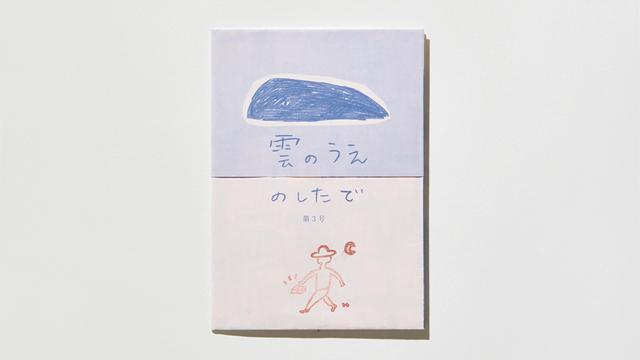 雲のうえ
のしたで
第3号